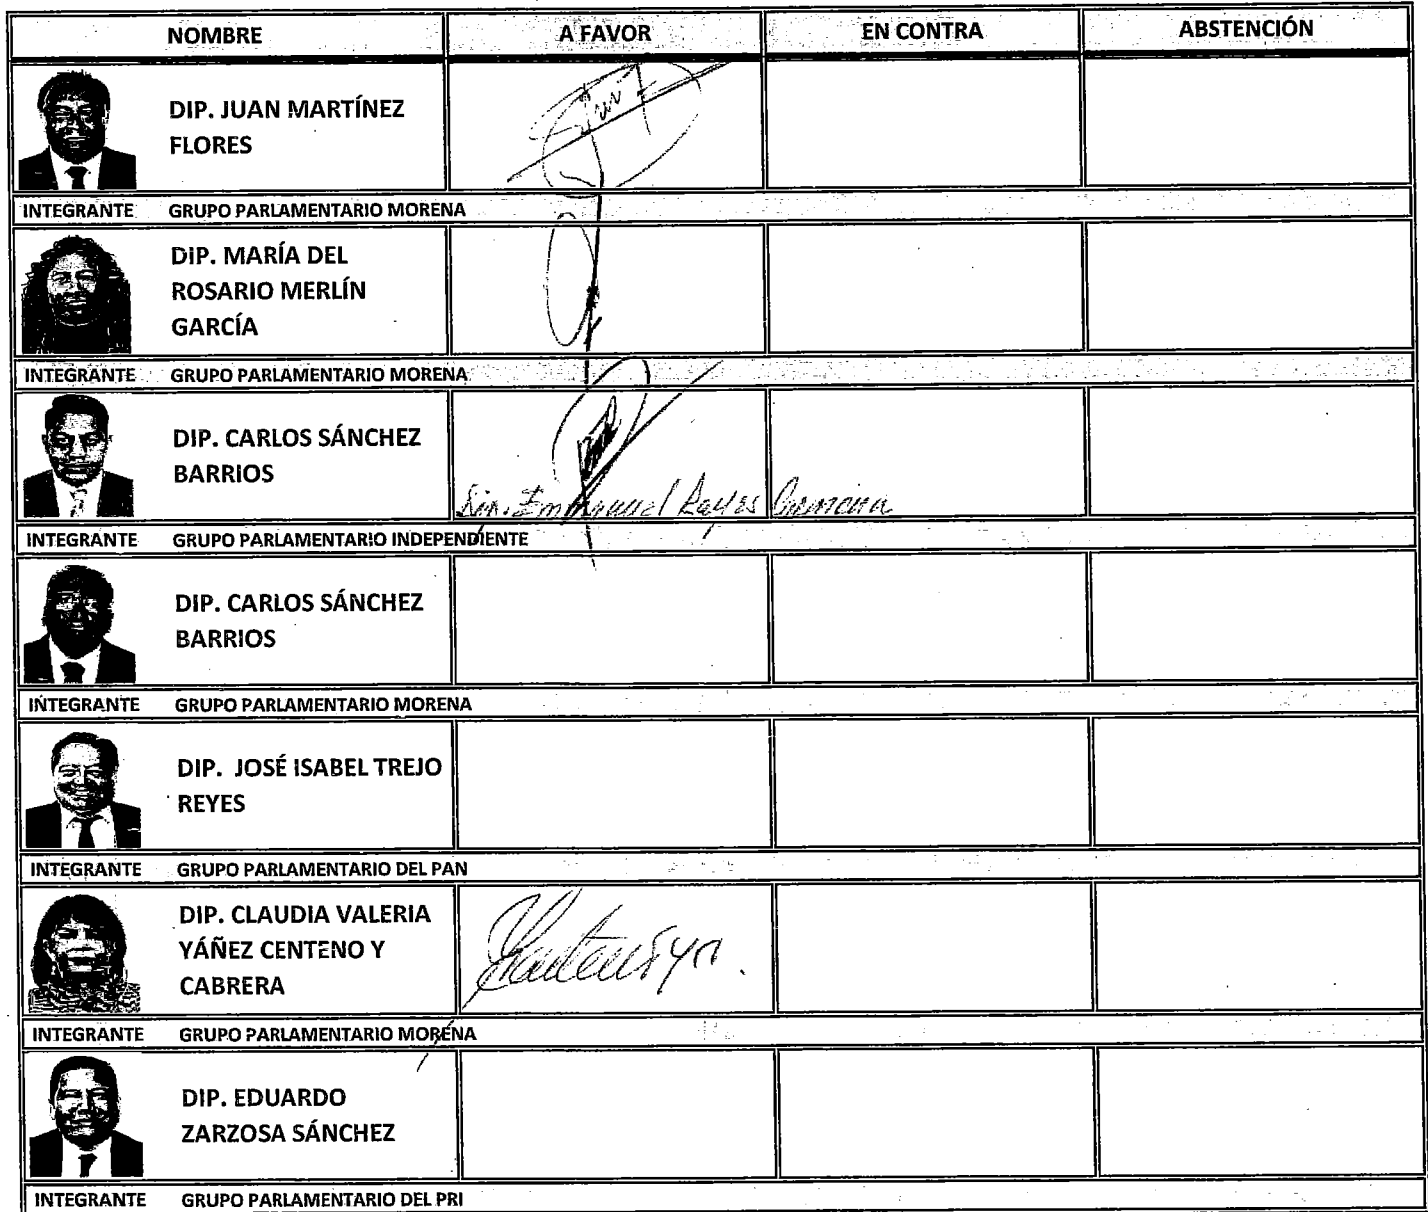 NOMBRE A FAVOR EN CONTRA ABSTENCIÓN
DIP. JUAN MARTÍNEZ
FLORES
INTEGRANTE GRUPO PARLAMENTARIO MORENA
DIP. MARÍA DEL
ROSARIO MERLÍN
GARCÍA
INTEGRANTE GRUPO PARLAMENTARIO MORENA
DIP. CARLOS SÁNCHEZ
BARRIOS
Dip. Emmanuel Reyes Carmona
INTEGRANTE GRUPO PARLAMENTARIO INDEPENDIENTE
DIP. CARLOS SÁNCHEZ
BARRIOS
INTEGRANTE GRUPO PARLAMENTARIO MORENA
DIP. JOSÉ ISABEL TREJO
REYES
INTEGRANTE GRUPO PARLAMENTARIO DEL PAN
DIP. CLAUDIA VALERIA
YÁÑEZ CENTENO Y
CABRERA
INTEGRANTE GRUPO PARLAMENTARIO MORENA
DIP. EDUARDO
ZARZOSA SÁNCHEZ
INTEGRANTE GRUPO PARLAMENTARIO DEL PRI